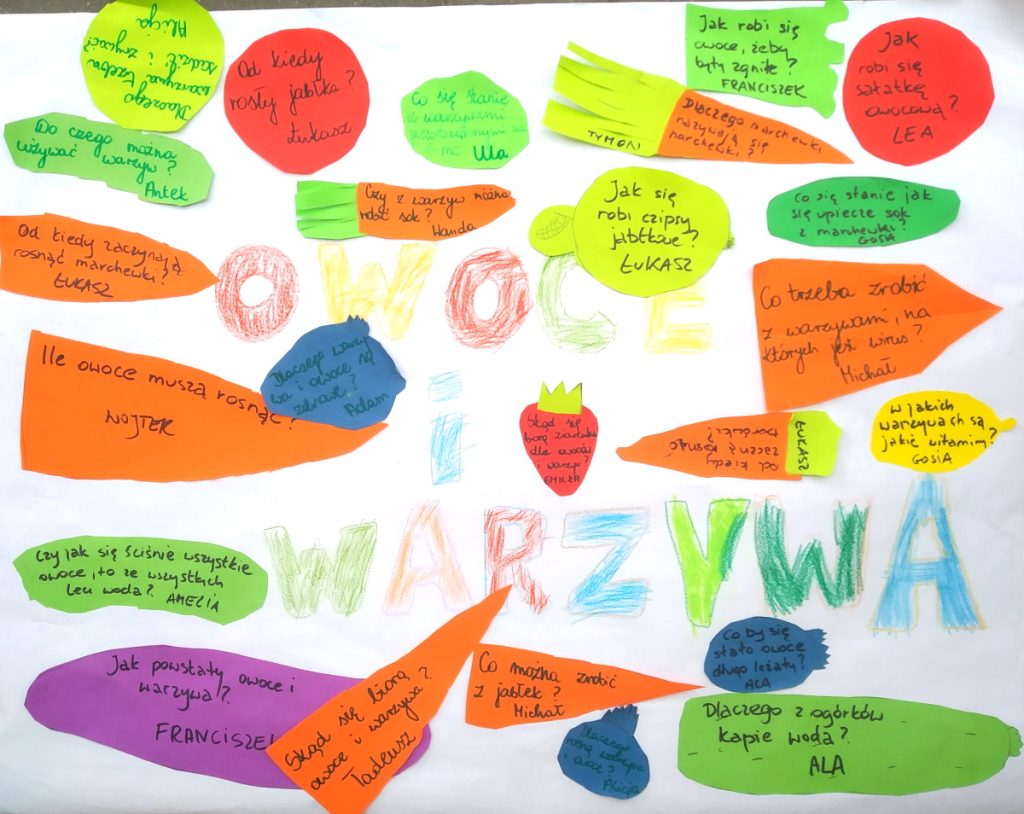 Dlaczego
warzywa trzeba
sadzić i zrywać?
Alicja
Od kiedy
rosły jabłka?
Łukasz
Co się stanie
z warzywami
mc. Ula
TYMON
Dlaczego marchewki
nazywają się
marchewki?
Jak robi się
owoce, żeby
były zgniłe?
FRANCISZEK
Jak
robi się
sałatkę
owocową?
LEA
Do czego można
używać warzyw?
Antek
Czy z warzyw można
robić sok?
Wanda
Jak się
robi czipsy
jabłkowe?
ŁUKASZ
Co się stanie jak
się upiecze sok
z marchewki?
GOSIA
Od kiedy zaczynają
rosnąć marchewki?
ŁUKASZ
OWOCE
Co trzeba zrobić
z warzywami, na
których jest wirus?
Michał
Ile owoce muszą rosnąć?
WOJTEK
Dlaczego warzy-
wa i owoce są
zdrowe?
Adam
i
Skąd się
biorą ziarenka
dla owoców
i warzyw?
EMILKA
od kiedy
zaczną rosnąć
borówki?
ŁUKASZ
W jakich
warzywach są
jakie witaminy?
GOSIA
WARZYWA
Czy jak się ściśnie wszystkie
owoce, to ze wszystkich
leci woda? AMELIA
Jak powstały owoce i
warzywa?
FRANCISZEK
Skąd się biorą
owoce i warzywa?
Tadeusz
Co można zrobić
z jabłek?
Michał
Co by się
stało owoce
długo leżały?
ALA
Dlaczego
rosną warzywa
i owoce?
Alicja
Dlaczego z ogórków
kapie woda?
ALA